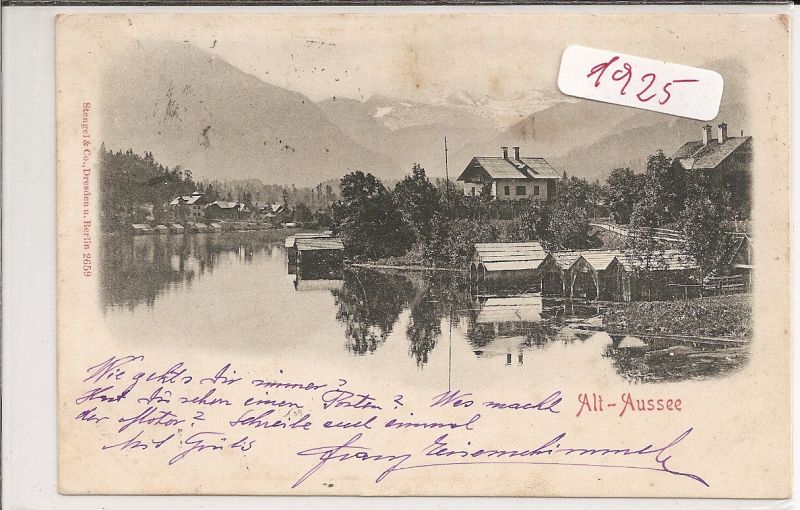 1925
Stengel & Co., Dresden u. Berlin 2659
Wie geht's Dir immer?
Hast Du schon einen Posten? Was macht
Alt-Aussee
der Motor? Schreibe auch einmal
Mit Gruß
Franz